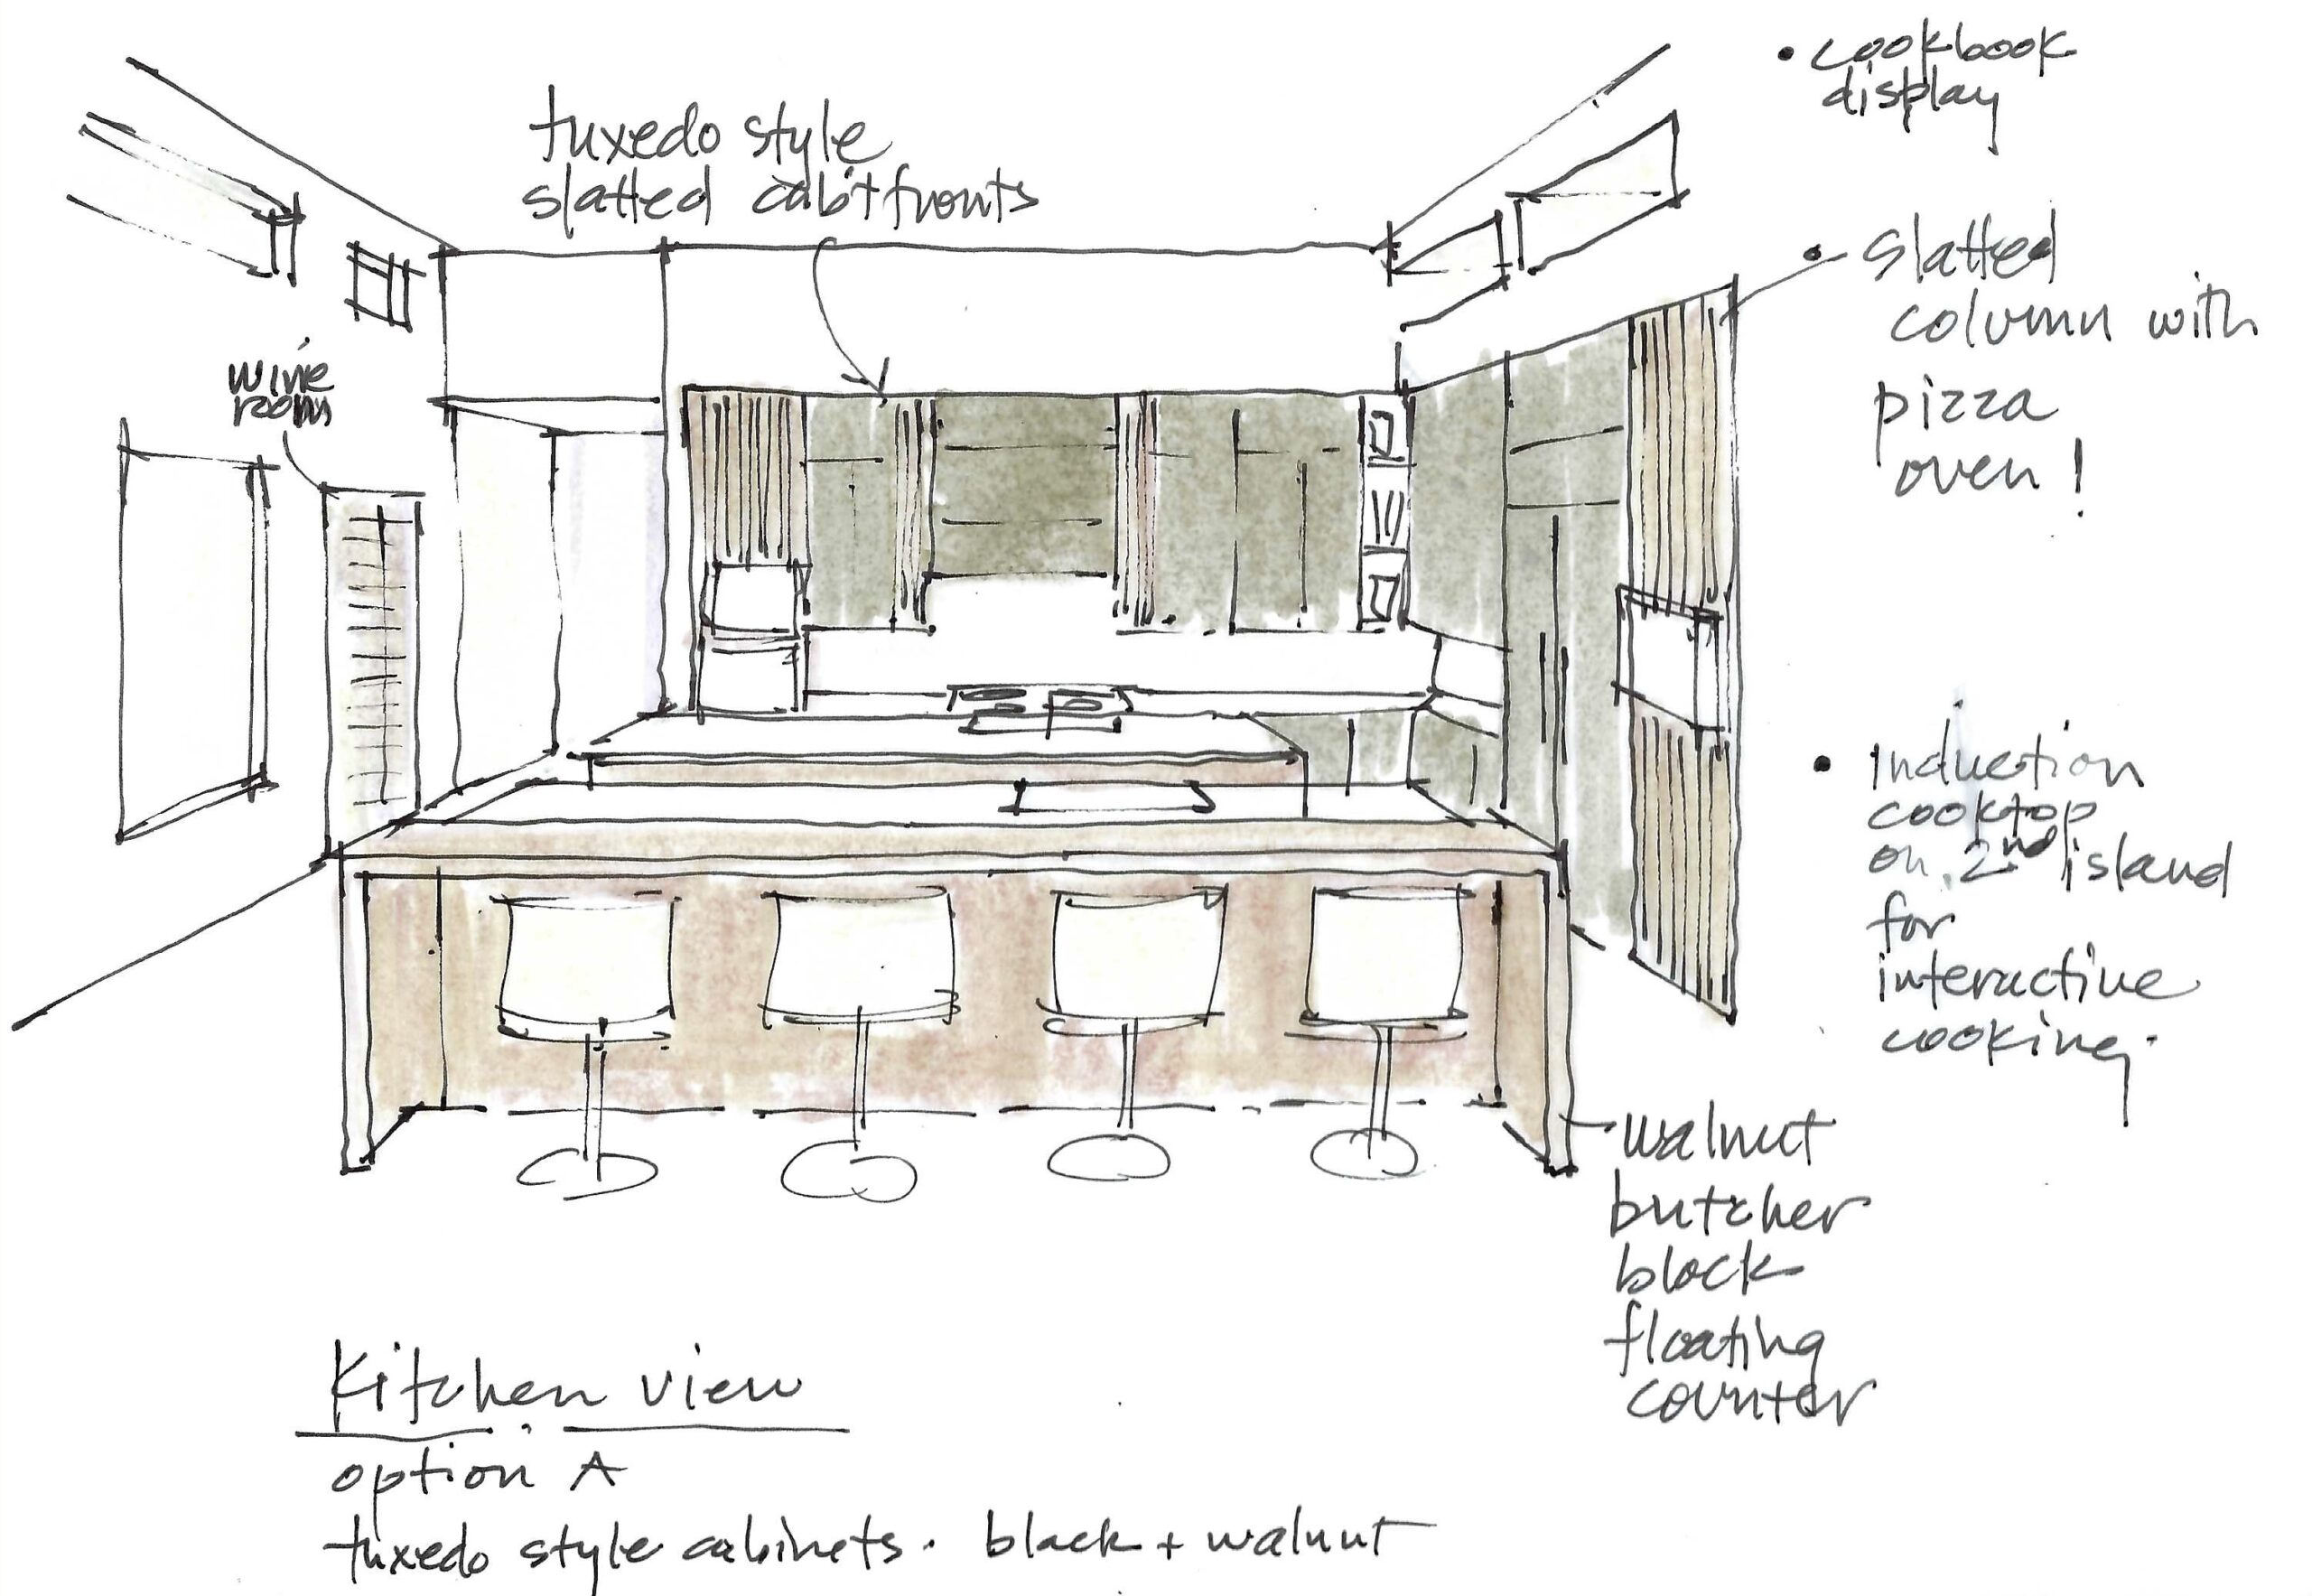 • cookbook
display
tuxedo style
slatted cab't fronts
• slatted
column with
pizza
oven!
wine
room
• induction
cooktop
on 2nd island
for
interactive
cooking.
walnut
butcher
block
floating
counter
Kitchen view
option A
tuxedo style cabinets. black + walnut